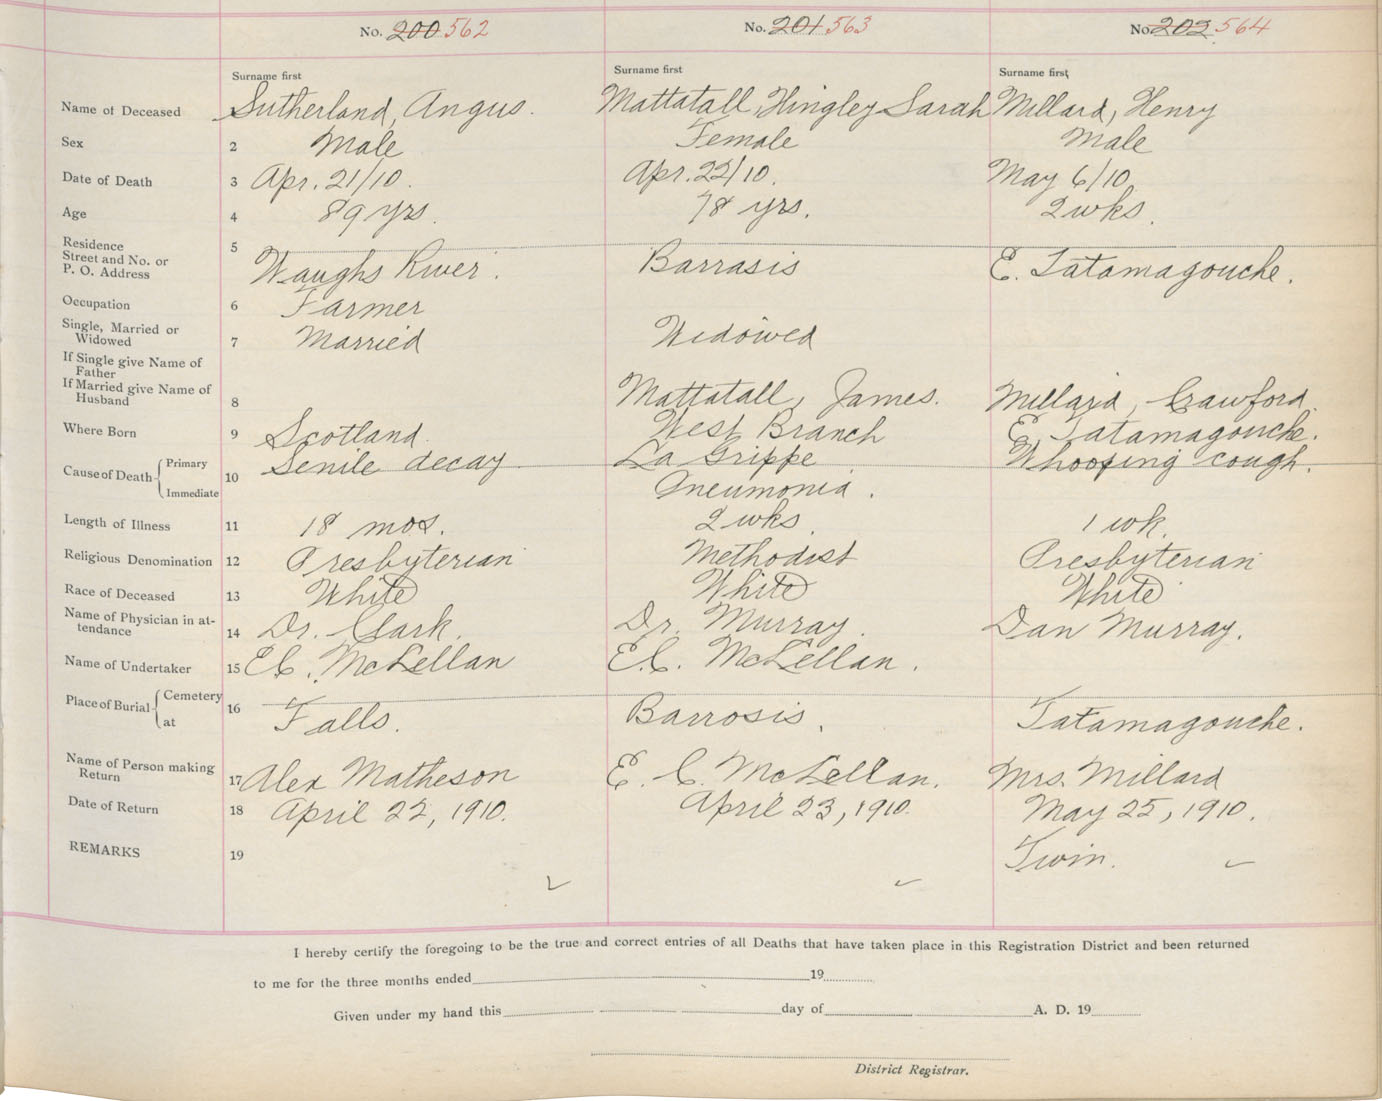 No. 200 562 No. 201 563 No. 202 564
Surname first Surname first Surname first
Name of Deceased 1 Sutherland, Angus. Mattatall, Hingley Sarah Millard, Henry
Sex 2 Male Female Male
Date of Death 3 Apr. 21/10. Apr. 22/10. May 6/10.
Age 4 89 yrs. 78 yrs. 2 wks.
Residence 5
Street and No. or
P. O. Address Waughs River. Barrasis E. Tatamagouche.
Occupation 6 Farmer
Single, Married or
Widowed 7 Married Widowed
If Single give Name of
Father
If Married give Name of
Husband 8 Mattatall, James. Millard, Crawford.
Where Born 9 Scotland. West Branch E. Tatamagouche.
Cause of Death Primary 10 Senile decay La Grippe Whooping cough.
Immediate Pneumonia.
Length of Illness 11 18 mos. 2 wks 1 wk.
Religious Denomination 12 Presbyterian Methodist Presbyterian
Race of Deceased 13 White White White
Name of Physician in at-
tendance 14 Dr. Clark. Dr. Murray. Dan Murray.
Name of Undertaker 15 E.C. McLellan E.C. McLellan.
Place of Burial Cemetery 16
at Falls. Barrosis. Tatamagouche.
Name of Person making
Return 17 Alex Matheson E. C. McLellan. Mrs. Millard
Date of Return 18 April 22, 1910. April 23, 1910. May 25, 1910.
REMARKS 19 Twin.
I hereby certify the foregoing to be the true and correct entries of all Deaths that have taken place in this Registration District and been returned
to me for the three months ended 19
Given under my hand this day of A. D. 19
District Registrar.